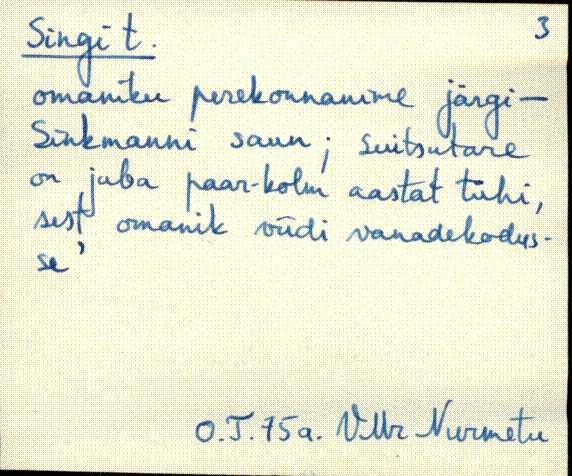 Singi t. 3
omaniku perekonnanime järgi —
Sinkmanni saun; suitsutare
on juba paar-kolm aastat tühi,
sest omanik viidi vanadekodus-
se'
O.T. 75a. VMr Nurmetu